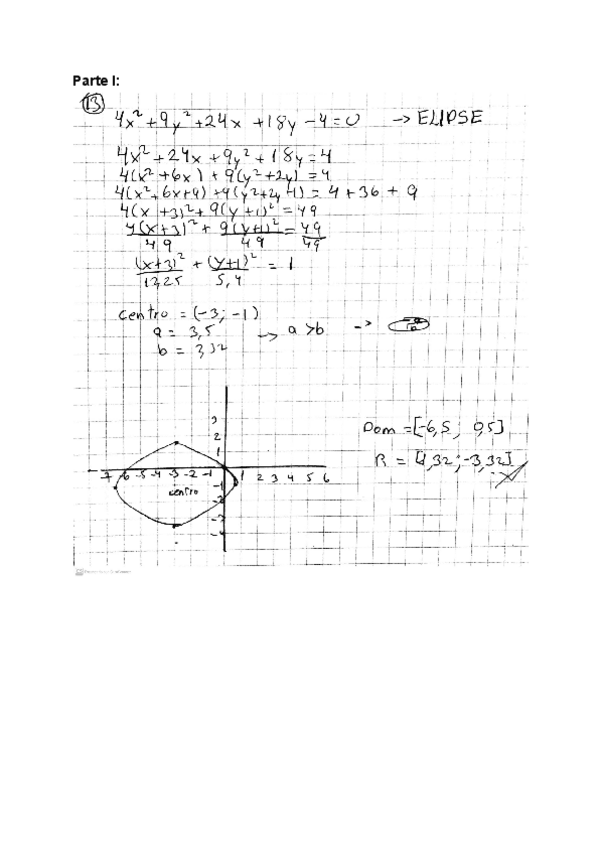 Parte I:
13
4x²+9y²+24x +18y -4=0 → ELIPSE
4x²+24x+9y²+18y=4
4(x²+6x)+9(y²+2y)=4
4(x²+6x+9)+9(y²+2y+1)=4+36+9
4(x+3)²+9(y+1)²=49
4(x+3)²/49 + 9(y+1)²/49 = 49/49
(x+3)²/12,25 + (y+1)²/5,4 = 1
centro = (-3; -1)
a = 3,5 → a>b →
b = 2,32
3
2
1
-7 -6 -5 -4 -3 -2 -1 1 2 3 4 5 6
centro
-1
-2
-3
-4
Dom =[-6,5; 0,5]
R = [1,32; -3,32]